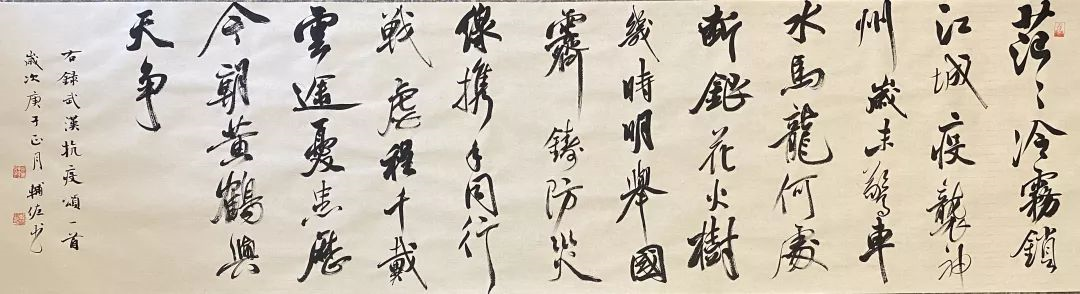 茫〻冷霧鎖
江城疫襲神
州歲末驚車
水馬龍何處
斷銀花火樹
幾時明舉國
齊鑄防災
像携手同行
戰虐程千載
雲途憂患歷
今朝黄鶴與
天争
右録武漢抗疫頌一首
歲次庚子正月輔佐书